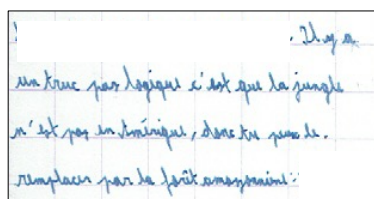 . Il y a
un truc pas logique c'est que la jungle
n'est pas en Amérique, donc tu peux le.
remplacer par la forêt amazonienne.